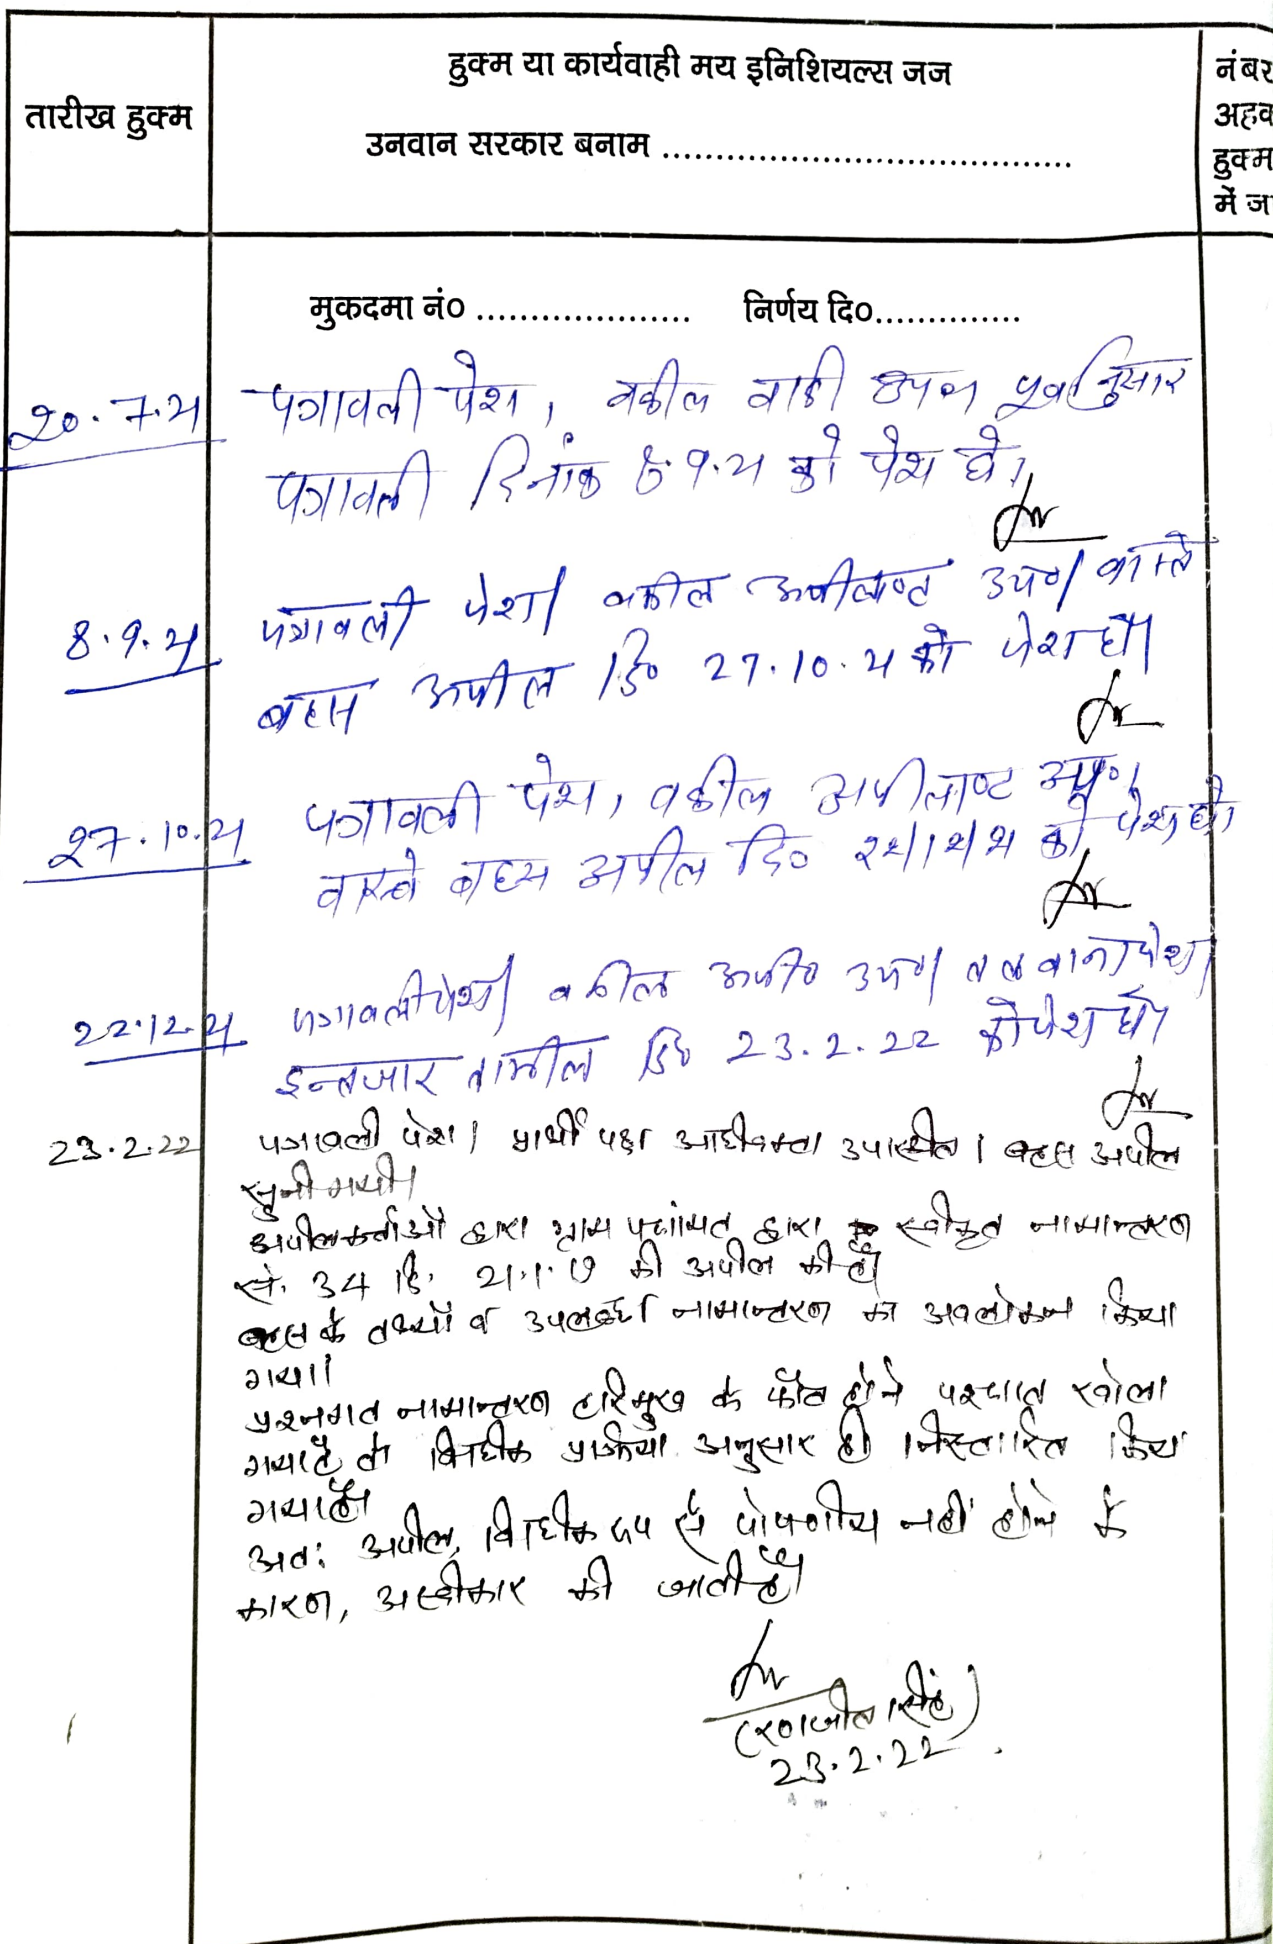 तारीख हुक्म
हुक्म या कार्यवाही मय इनिशियल्स जज
उनवान सरकार बनाम .......................................
नंबर
अहव
हुक्म
में ज
मुकदमा नं० .................... निर्णय दि०..............
20.7.21 पत्रावली पेश, वकील वादी उप० पूर्वानुसार
पत्रावली दिनांक 8.9.21 को पेश हो।
8.9.21 पत्रावली पेश। वकील अपीलाण्ट उप०। वास्ते
बहस अपील दि० 27.10.21 को पेश हो।
27.10.21 पत्रावली पेश, वकील अपीलाण्ट उप०।
वास्ते बहस अपील दि० को पेश हो।
22.12.21 पत्रावली पेश। वकील अपी० उप०। तलवाना पेश।
इन्तजार तामील दि० 23.2.22 को पेश हो।
23.2.22 पत्रावली पेश। प्रार्थी पक्ष अधिवक्ता उपस्थित। बहस अपील
सुनी गयी।
अपीलकर्ताओं द्वारा ग्राम पंचायत द्वारा स्वीकृत नामान्तरण
सं. 34 दि. 21.1.17 की अपील की है।
बहस के तथ्यों व उपलब्ध नामान्तरण का अवलोकन किया
गया।
प्रश्नगत नामान्तरण हरिमुख के फौत होने पश्चात खोला
गया है जो विधिक प्रक्रिया अनुसार ही निस्तारित किया
गया है।
अतः अपील, विधिक रूप से पोषणीय नहीं होने के
कारण, अस्वीकार की जाती है।
(रणजीत सिंह)
23.2.22